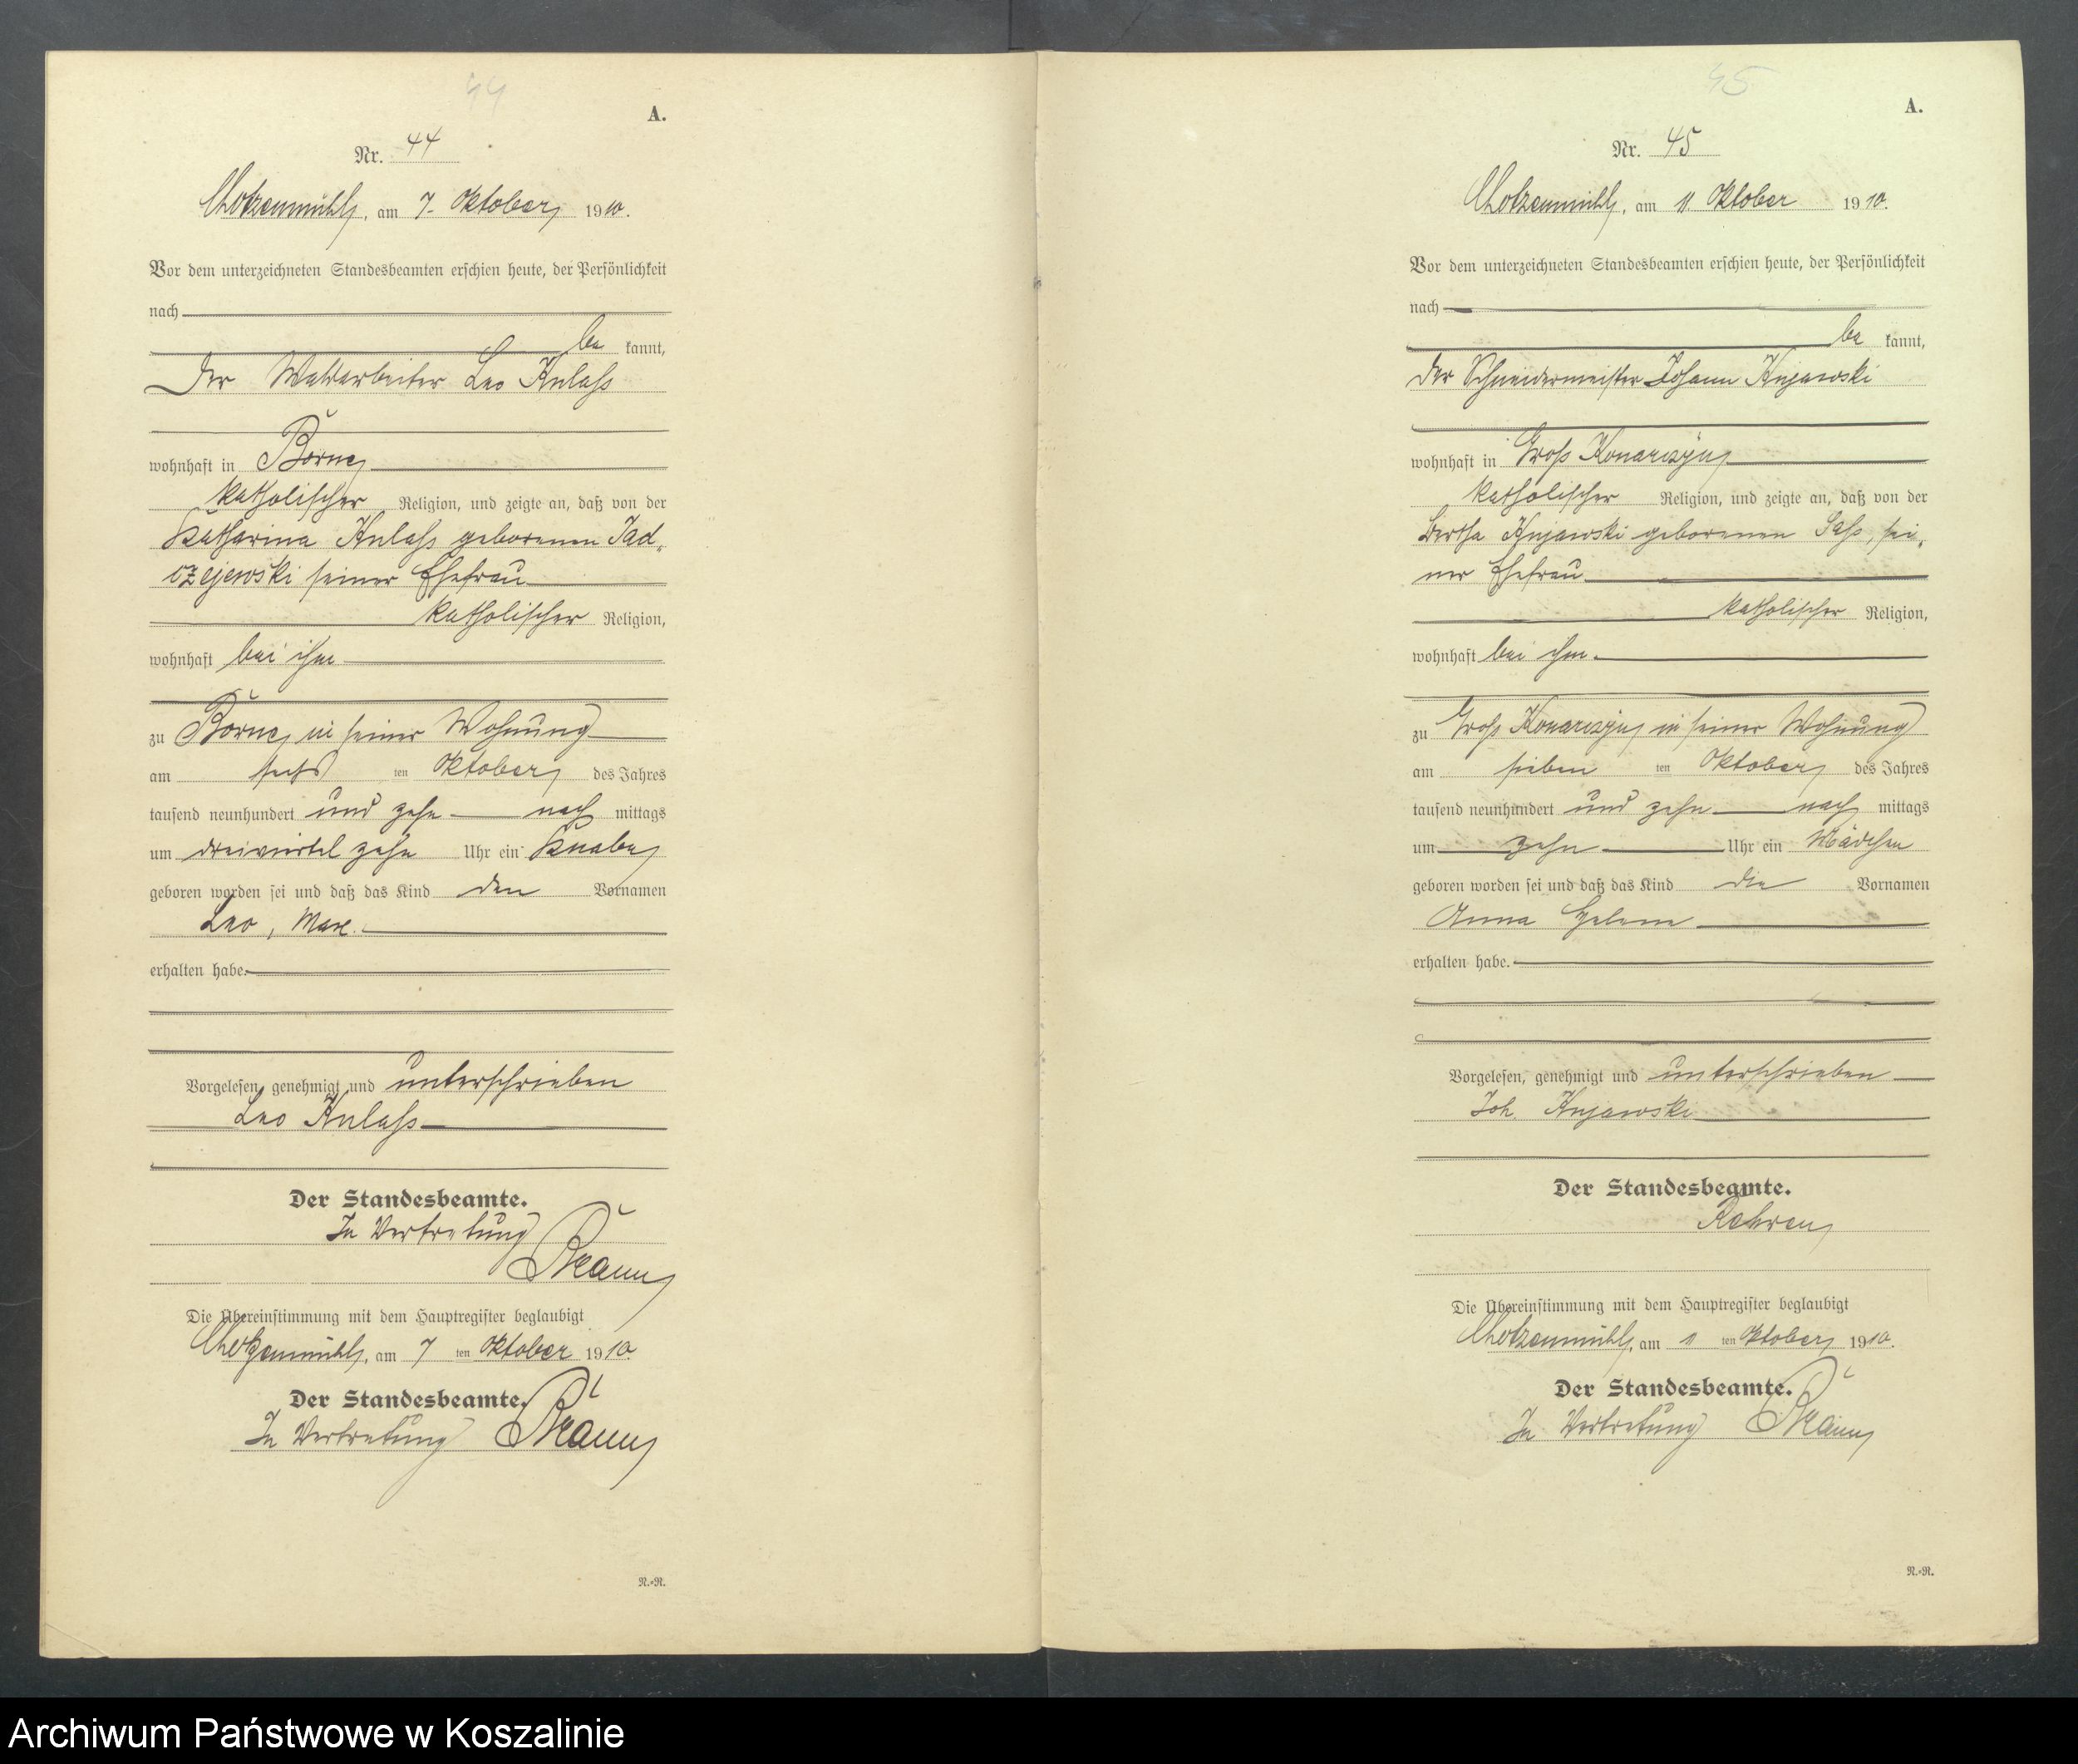 44
A.
Nr. 44
Chotzenmühl, am 7. Oktober 1910.
Vor dem unterzeichneten Standesbeamten erschien heute, der Persönlichkeit
nach
be kannt,
der Waldarbeiter Leo Kulaß
wohnhaft in Borne
katholischer Religion, und zeigte an, daß von der
Katharina Kulaß geborenen Jad-
czejewski seiner Ehefrau
katholischer Religion,
wohnhaft bei ihm
zu Borne, in seiner Wohnung
am sechs ten Oktober des Jahres
tausend neunhundert und zehn nach mittags
um dreiviertel zehn Uhr ein Knabe
geboren worden sei und daß das Kind den Vornamen
Leo, Max.
erhalten habe.
Vorgelesen, genehmigt und unterschrieben
Leo Kulaß
Der Standesbeamte.
In Vertretung
Die Übereinstimmung mit dem Hauptregister beglaubigt
Chotzenmühl, am 7 ten Oktober 1910.
Der Standesbeamte.
In Vertretung
N.-R.
45
A.
Nr. 45
Chotzenmühl, am 11 Oktober 1910.
Vor dem unterzeichneten Standesbeamten erschien heute, der Persönlichkeit
nach
be kannt,
der Schneidermeister Johann Kujawski
wohnhaft in Groß Konarczyn
katholischer Religion, und zeigte an, daß von der
Bertha Kujawski geborenen Saß, sei-
ner Ehefrau
katholischer Religion,
wohnhaft bei ihm.
zu Groß Konarczyn, in seiner Wohnung
am sieben ten Oktober des Jahres
tausend neunhundert und zehn nach mittags
um zehn Uhr ein Mädchen
geboren worden sei und daß das Kind die Vornamen
Anna Helene
erhalten habe.
Vorgelesen, genehmigt und unterschrieben
Joh. Kujawski
Der Standesbeamte.
Die Übereinstimmung mit dem Hauptregister beglaubigt
Chotzenmühl, am 11 ten Oktober 1910.
Der Standesbeamte.
In Vertretung
N.-R.
Archiwum Państwowe w Koszalinie